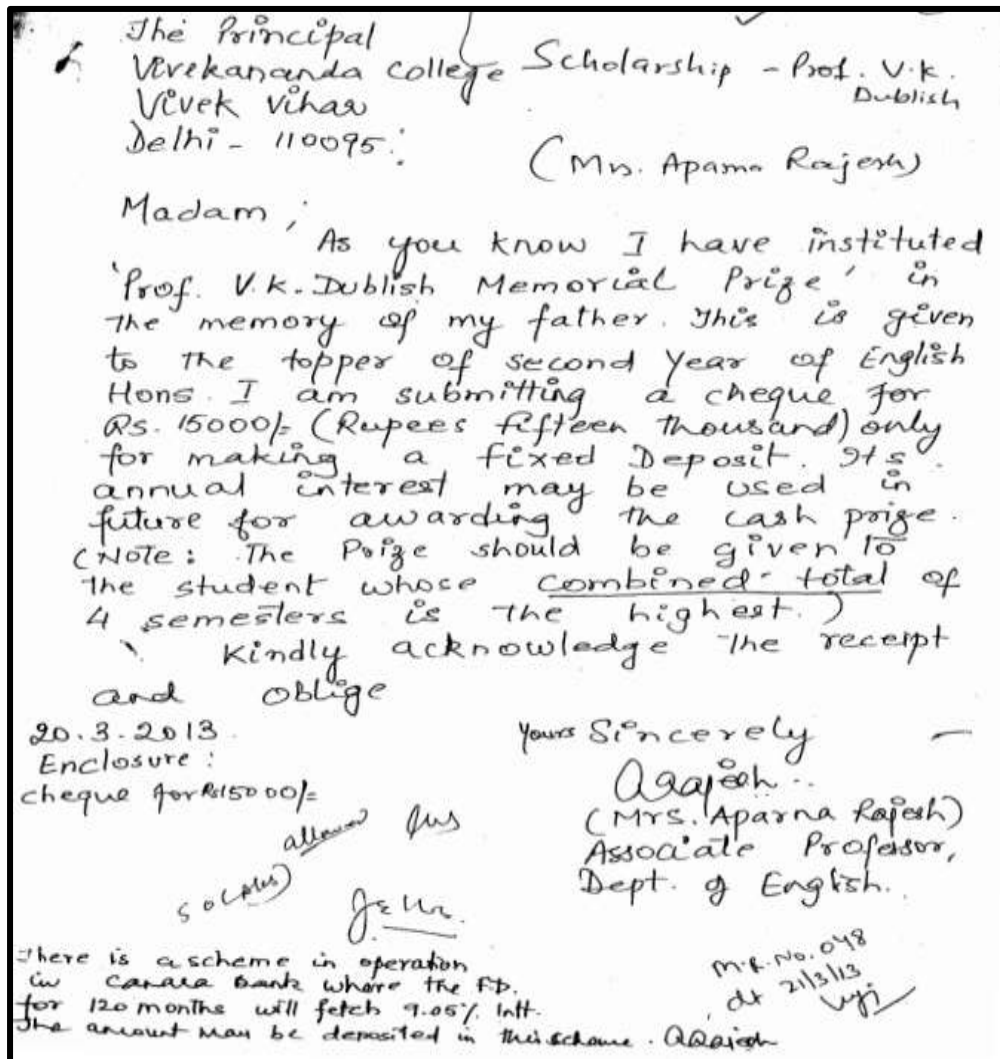 The Principal
Vivekananda College
Vivek Vihar
Delhi - 110095.
Scholarship - Prof. V.K.
Dublish
(Mrs. Aparna Rajesh)
Madam,
As you know I have instituted
'Prof. V.K. Dublish Memorial Prize' in
the memory of my father. This is given
to the topper of second Year of English
Hons. I am submitting a cheque for
Rs. 15000/- (Rupees fifteen thousand) only
for making a fixed Deposit. Its
annual interest may be used in
future for awarding the cash prize.
(Note: The Prize should be given to
the student whose combined total of
4 semesters is the highest.)
Kindly acknowledge the receipt
and oblige
20.3.2013.
Enclosure:
cheque for Rs15000/=
Yours Sincerely
ARajesh
(Mrs. Aparna Rajesh)
Associate Professor,
Dept. of English.
allowed
There is a scheme in operation
in Canara Bank where the FD.
for 120 months will fetch 9.05% Intt.
The amount may be deposited in this scheme. ARajesh
M.R. No. 048
dt 21/3/13